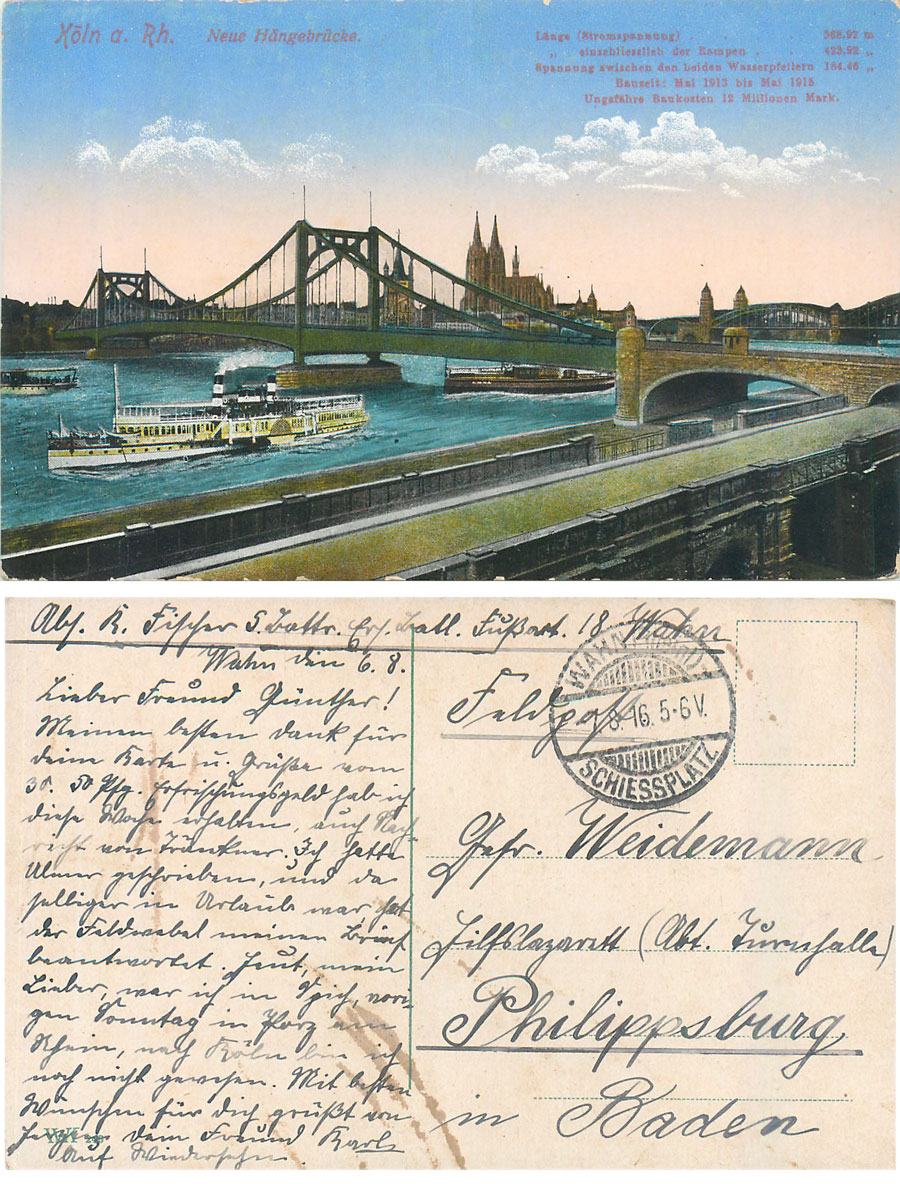 Köln a. Rh. Neue Hängebrücke.
Länge (Stromspannung) . . . . . 368.97 m
„ einschliesslich der Rampen . . 423.92 „
Spannung zwischen den beiden Wasserpfeilern 184.46 „
Bauzeit: Mai 1913 bis Mai 1915
Ungefähre Baukosten 12 Millionen Mark.
Abs. K. Fischer 5. Battr. Ers. Batl. Fußart. 18 Wahn
Wahn den 6. 8.
Lieber Freund Günther!
Meinen besten Dank für
deine Karte u. Grüße vom
30. 50 Pfg. Erfrischungsgeld hab ich
diese Woche erhalten, auch Nach-
richt von Tränkner. Ich hatte
Ulmer geschrieben, und da
selliger in Urlaub war, hat
der Feldwebel meinen Brief
beantwortet. Heut, mein
Lieber, war ich in Spich, vori-
gen Sonntag in Porz am
Rhein, nach Köln bin ich
noch nicht gewesen. Mit besten
Wünschen für dich grüßt von
dein Freund Karl
Auf Wiedersehn.
Feldpost
WAHN
8.16.5-6V.
SCHIESSPLATZ
Gefr. Weidemann
Hilfslazarett (Abt. Turnhalle)
Philippsburg
in Baden